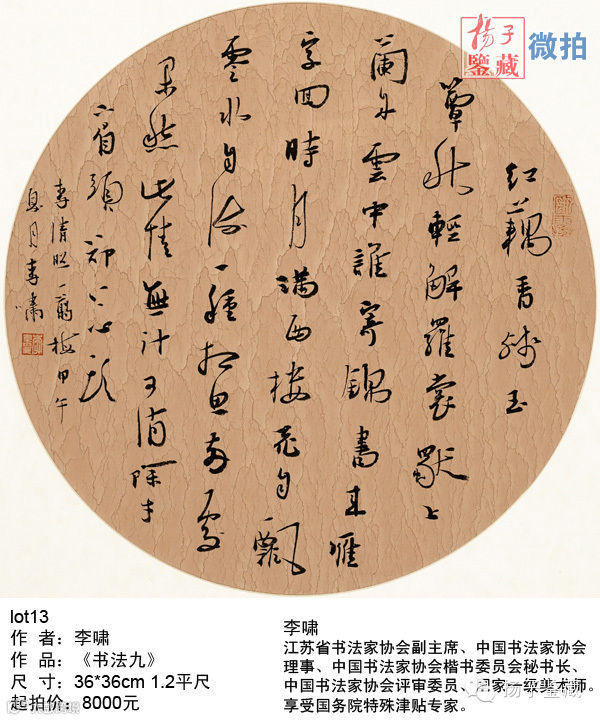 红藕香殘玉
簟秋輕解羅裳獨上
蘭舟雲中誰寄錦書來雁
字回時月滿西樓花自飄
零水自流一種相思兩處
閒愁此情無計可消除才
下眉頭卻上心頭
李清照一剪梅甲午
月李嘯
扬子鑒藏 微拍
lot13
作 者：李啸
作 品：《书法九》
尺 寸：36*36cm 1.2平尺
起拍价：8000元
李啸
江苏省书法家协会副主席、中国书法家协会
理事、中国书法家协会楷书委员会秘书长、
中国书法家协会评审委员、国家一级美术师。
享受国务院特殊津贴专家。
扬子鉴藏